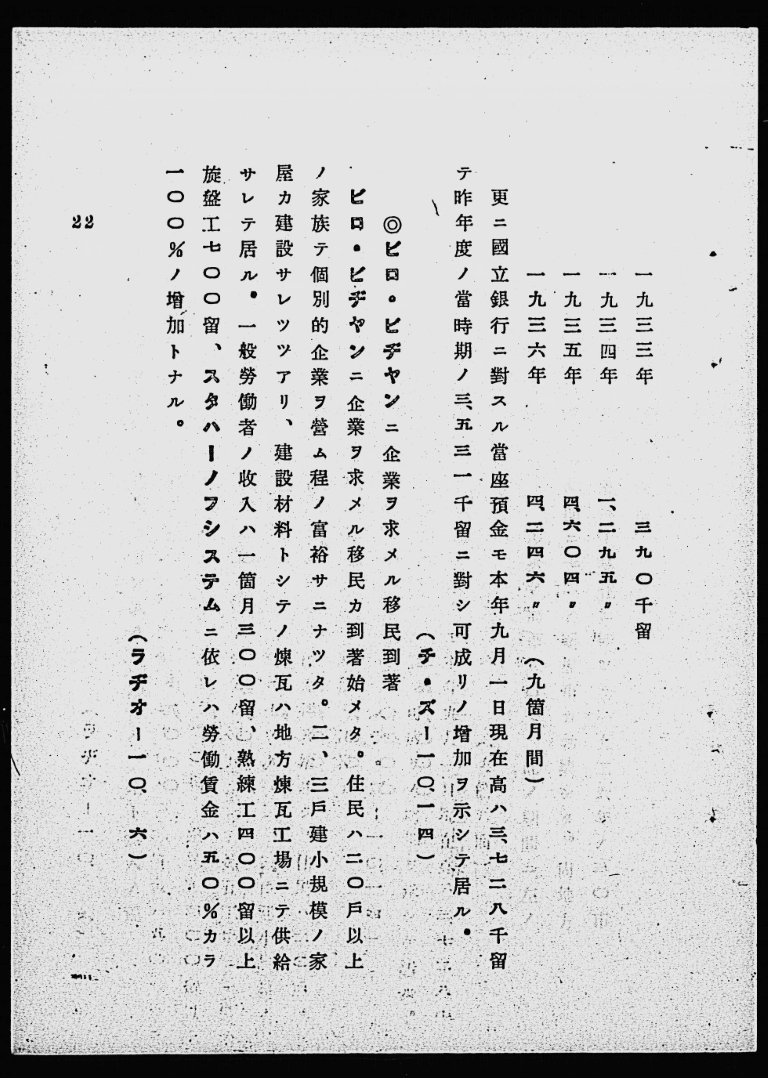 一九三三年　三九〇千留
一九三四年　一、二九五〃
一九三五年　四、六〇四〃
一九三六年　四、二四六〃（九箇月間）
更ニ國立銀行ニ對スル當座預金モ本年九月一日現在高ハ三、七二八千留
テ昨年度ノ當時期ノ三、五三一千留ニ對シ可成リノ增加ヲ示シテ居ル。
（チ・ズー一〇、一四）
◎ビロ・ビヂヤンニ企業ヲ求メル移民到著
ビロ・ビヂヤンニ企業ヲ求メル移民カ到著始メタ。住民ハ二〇戶以上
ノ家族テ個別的企業ヲ營ム程ノ富裕サニナツタ。二、三戶建小規模ノ家
屋カ建設サレツツアリ、建設材料トシテノ煉瓦ハ地方煉瓦工場ニテ供給
サレテ居ル。一般勞働者ノ收入ハ一箇月三〇〇留、熟練工四〇〇留以上
旋盤工七〇〇留、スタハーノフシステムニ依レハ勞働賃金ハ五〇％カラ
一〇〇％ノ增加トナル。
（ラヂオー一〇、一六）
22